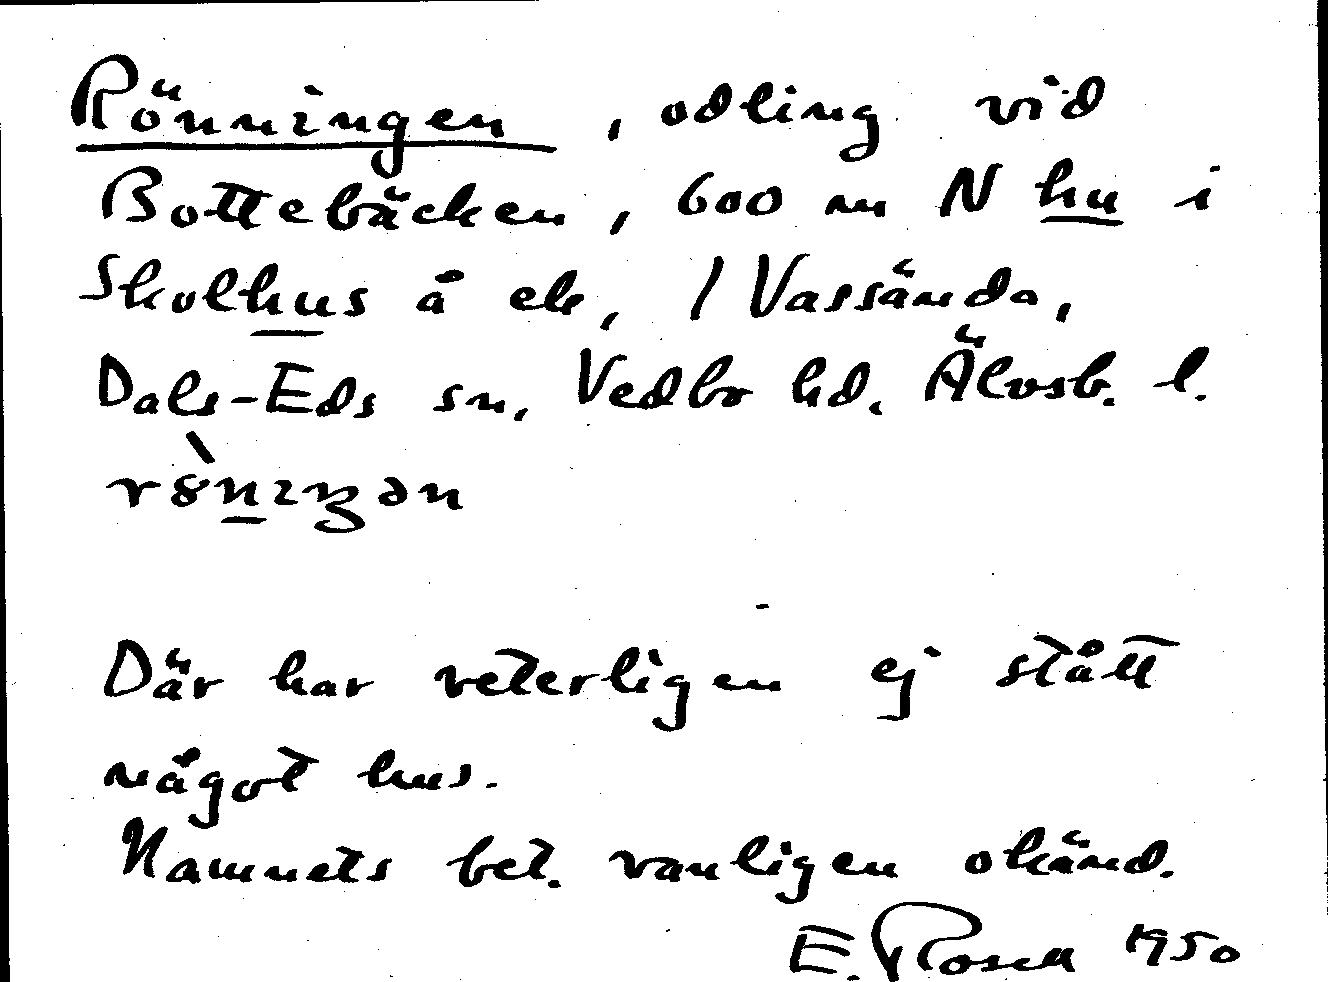 Rönningen, odling vid
Bottebäcken, 600 m N hu i
Skolhus å ek, 1 Vassända,
Dals-Eds sn, Vedbo hd. Älvsb. l.
Där har veterligen ej stått
något hus.
Namnets bet. vanligen okänd.
E. Rosell 1950